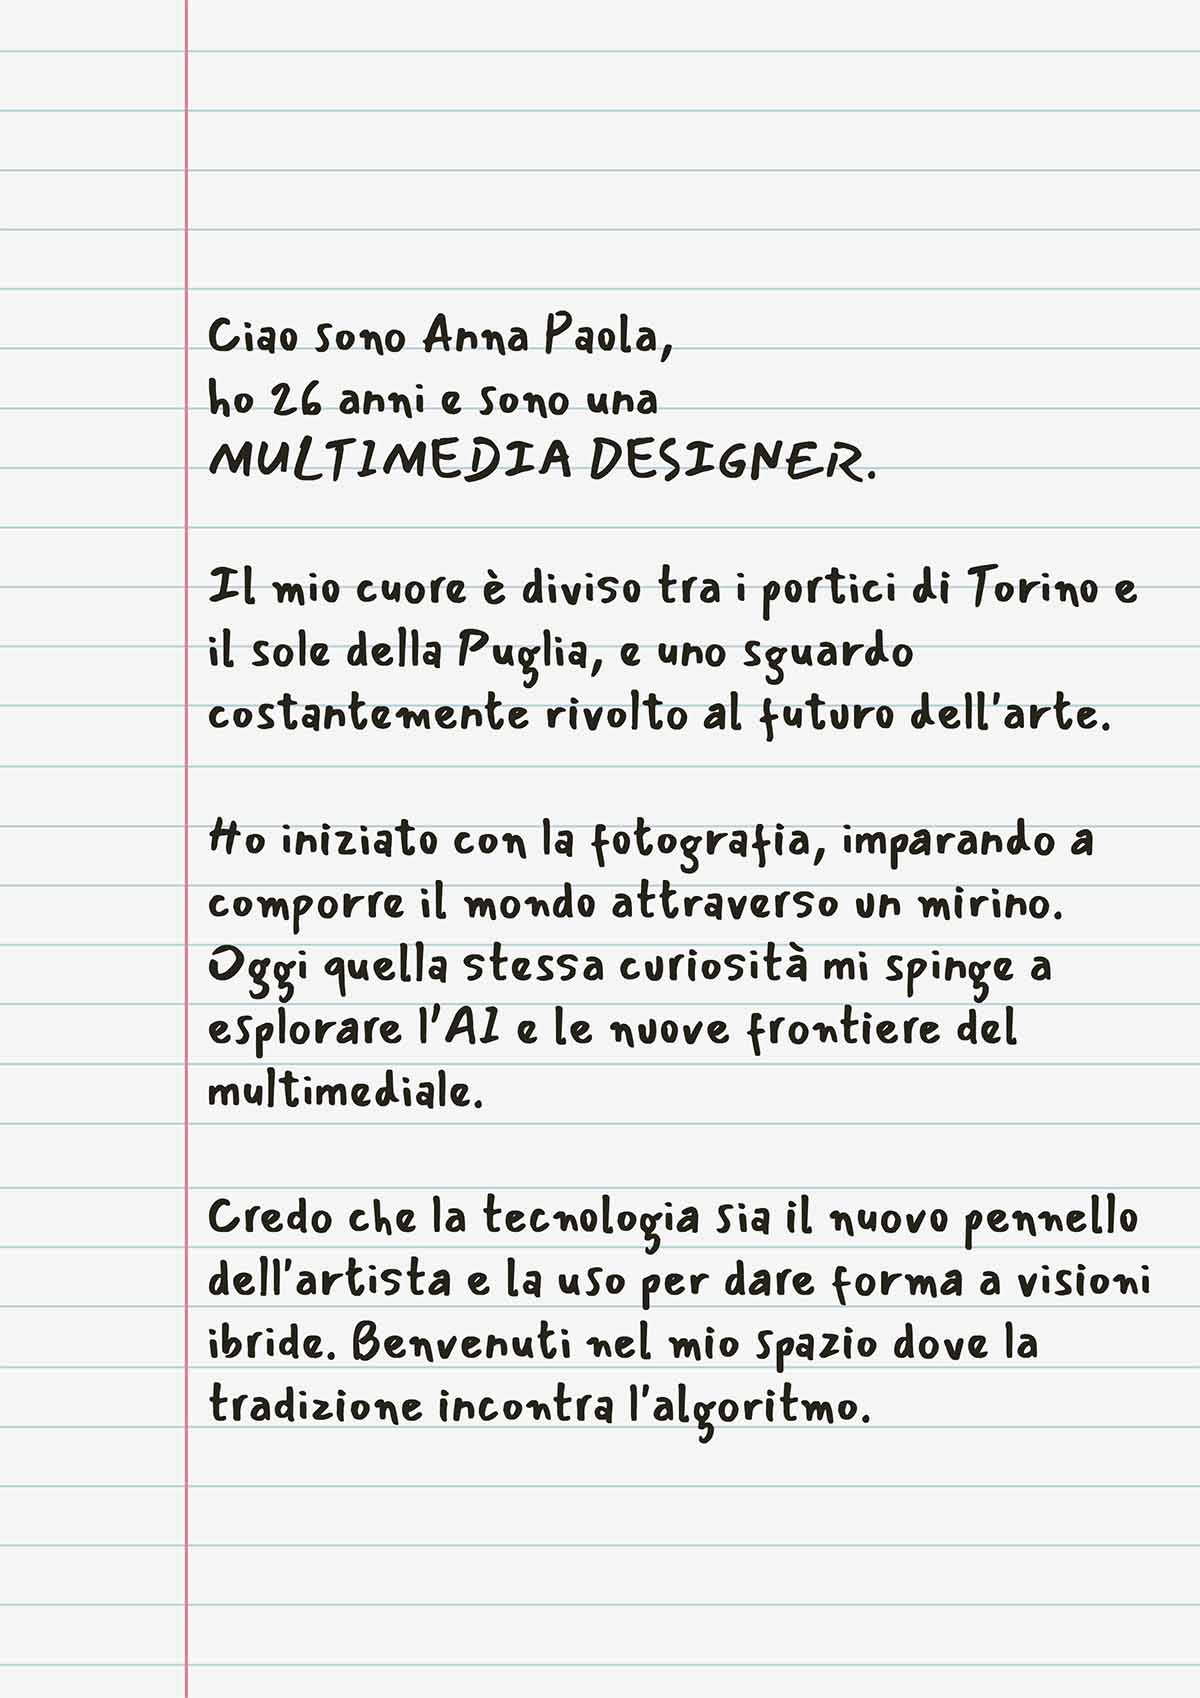 Ciao sono Anna Paola,
ho 26 anni e sono una
MULTIMEDIA DESIGNER.
Il mio cuore è diviso tra i portici di Torino e
il sole della Puglia, e uno sguardo
costantemente rivolto al futuro dell'arte.
Ho iniziato con la fotografia, imparando a
comporre il mondo attraverso un mirino.
Oggi quella stessa curiosità mi spinge a
esplorare l'AI e le nuove frontiere del
multimediale.
Credo che la tecnologia sia il nuovo pennello
dell'artista e la uso per dare forma a visioni
ibride. Benvenuti nel mio spazio dove la
tradizione incontra l'algoritmo.